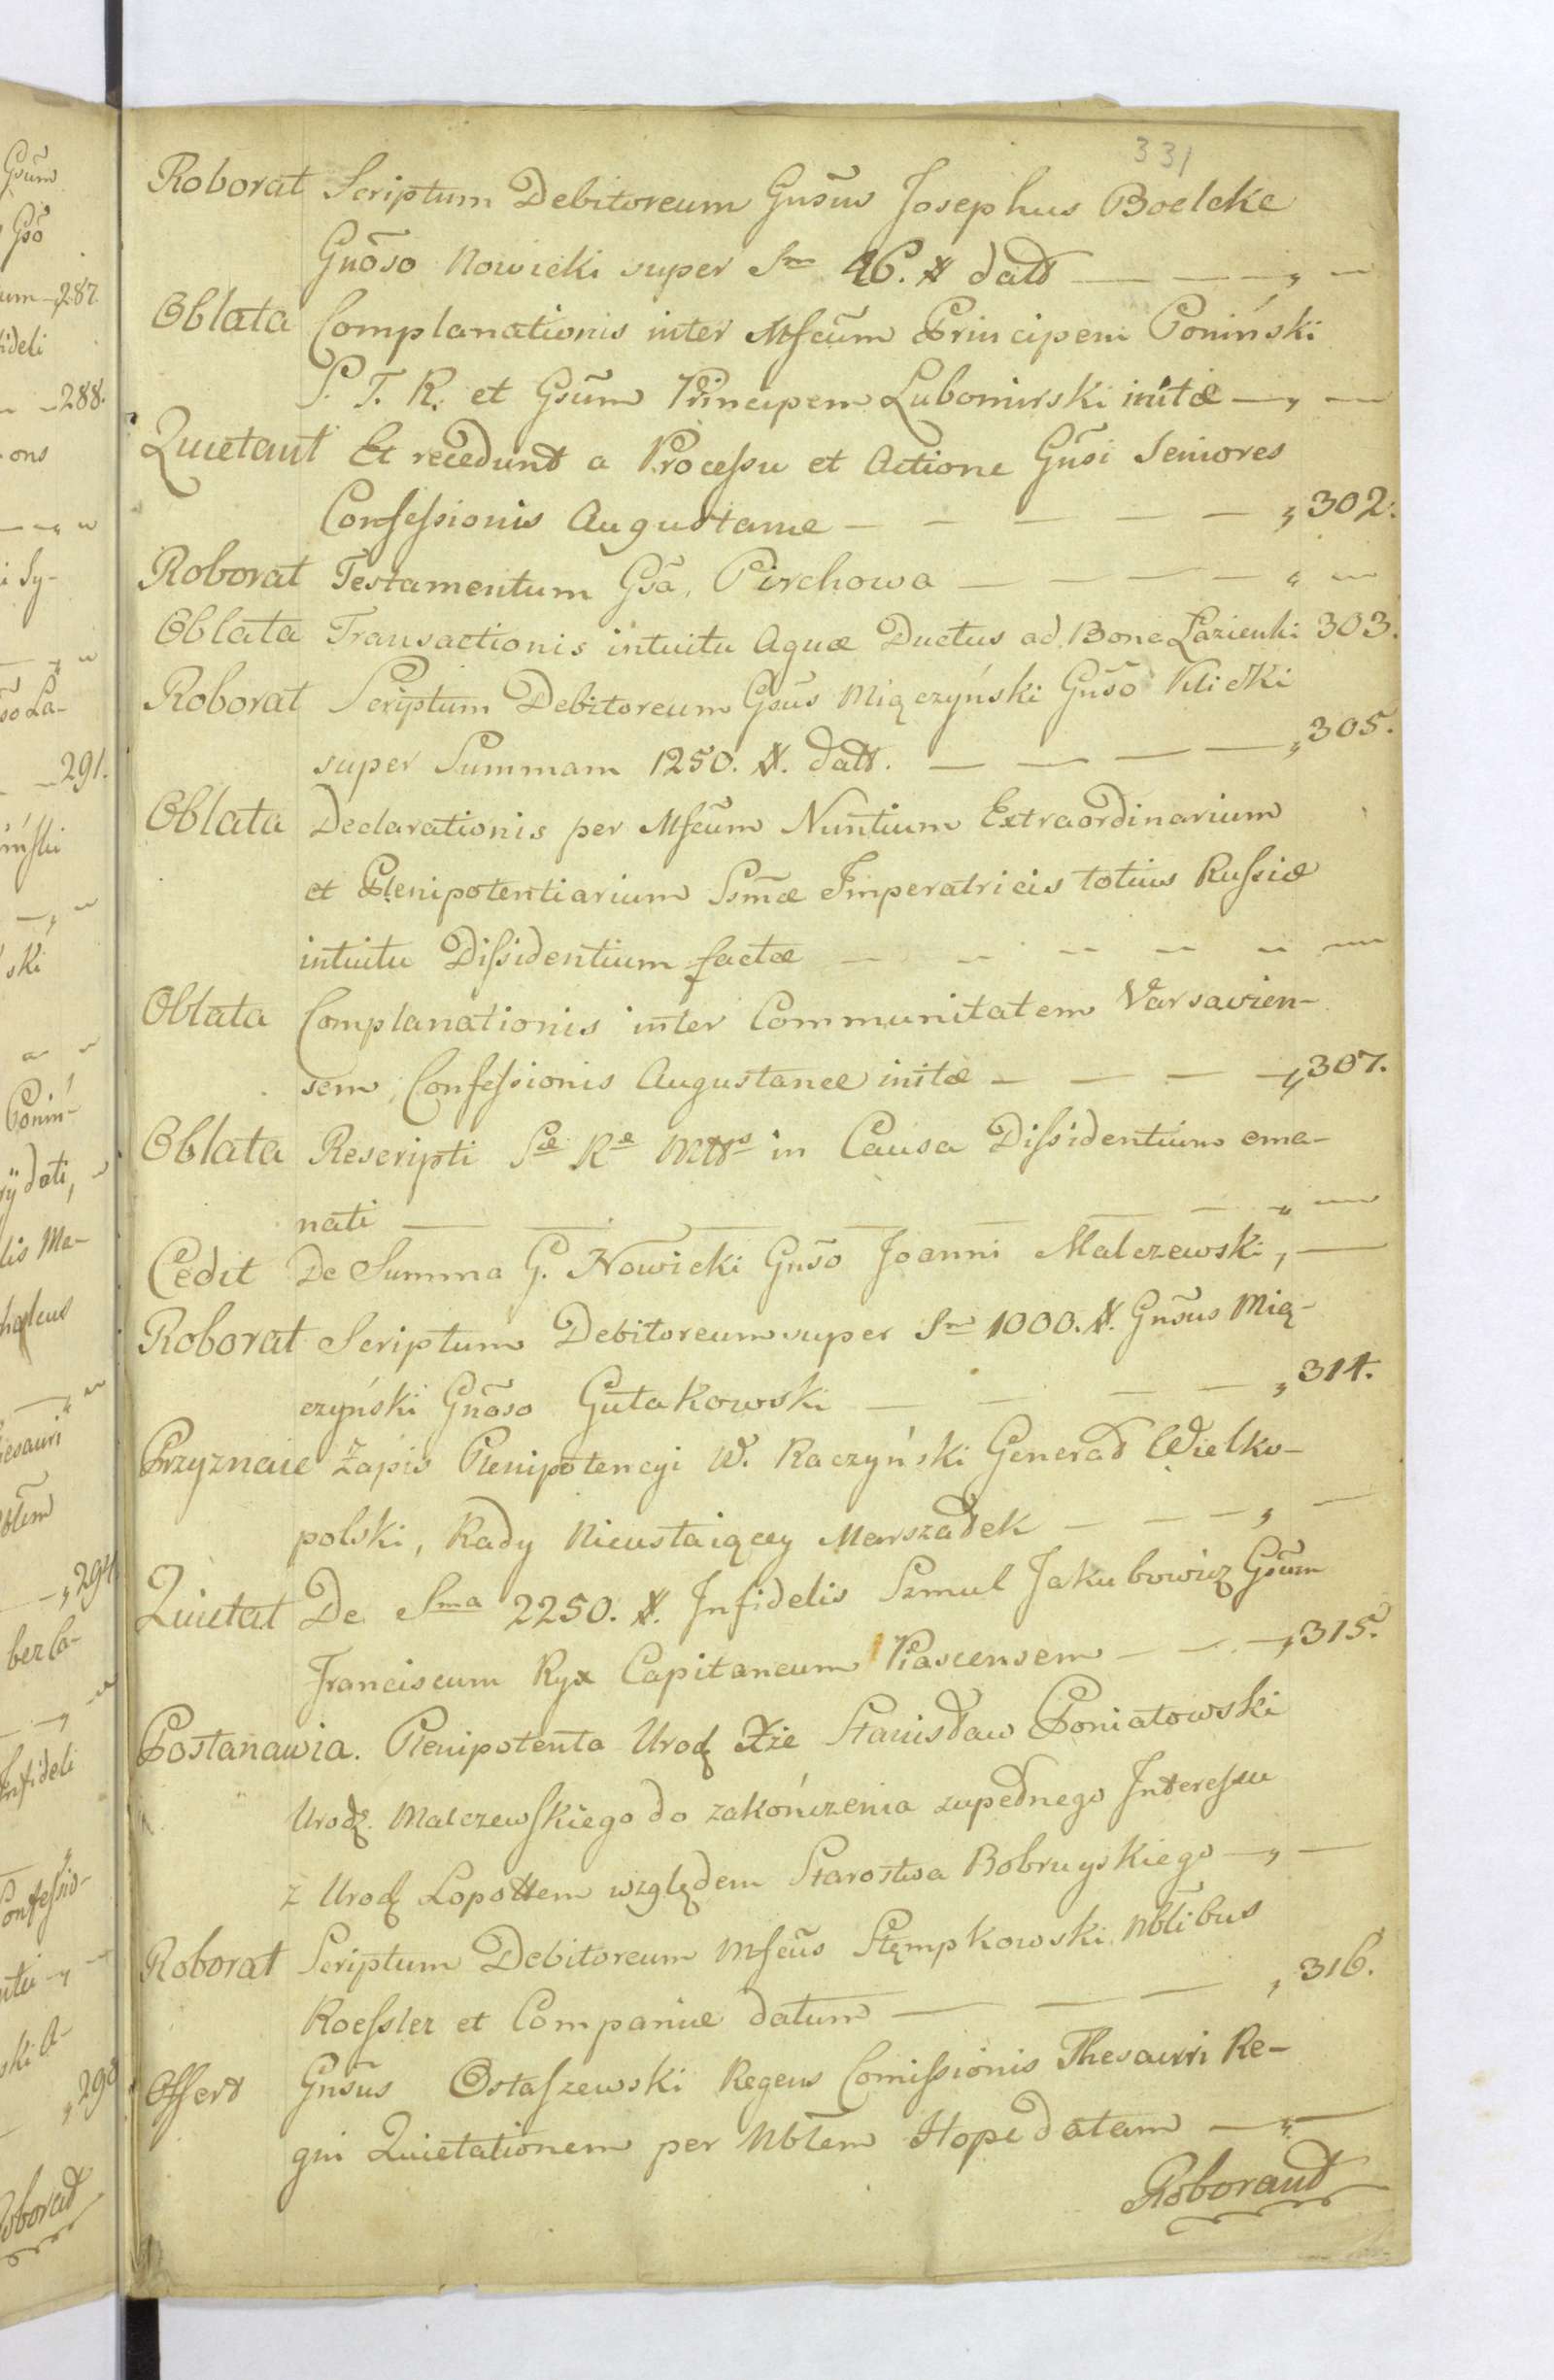 331
Roborat Scriptum Debitoreum Gnsus Josephus Boelcke
Gnoso Nowicki super Sm 46. # datt — — — „ —
Oblata Complanationis inter Mfcum Principem Poniński
P. T. R. et Gsum Principem Lubomirski initæ — „ —
Quietant Et recedunt a Processu et Actione Gnsi Seniores
Confessionis Augustanæ — — — — — „ 302.
Roborat Testamentum Gsa. Pirchowa — — — „ —
Oblata Transactionis intuitu Aquæ Ductus ad Bone Łazienki 303.
Roborat Scriptum Debitoreum Gsus Miączyński Gnso Klicki
super Summam 1250. #. datt. — — — — „ 305.
Oblata Declarationis per Mfcum Nuntium Extraordinarium
et Plenipotentiarium Ssmæ Imperatricis totius Russiæ
intuitu Dissidentium factæ — — — — — —
Oblata Complanationis inter Communitatem Varsavien-
sem, Confessionis Augustanæ initæ — — — — „ 307.
Oblata Rescripti Sæ Ræ Mttis in Causa Dissidentium ema-
nati — — — — — — „ —
Cedit De Summa G. Nowicki Gnso Joanni Malczewski, —
Roborat Scriptum Debitoreum super Sm 1000. #. Gnsus Mią-
czyński Gnoso Gutakowski — — — — „ 314.
Przyznaie Zapis Plenipotencyi W. Raczyński Generał Wielko-
polski, Rady Nieustaiącey Marszałek — — — „ —
Quietat De Sma 2250. #. Infidelis Szmul Jakubowicz Gsum
Franciscum Ryx Capitaneum Piascensem — — — „ 315.
Postanawia. Plenipotenta Urodz Xże Stanisław Poniatowski
Urodz. Malczewskiego do zakończenia zupełnego Interessu
z Urodz Lopottem względem Starostwa Bobruyskiego — „ —
Roborat Scriptum Debitoreum Mfcus Stępkowski Nblibus
Roessler et Companiæ datum — — — „ 316.
Offert Gnsus Ostaszewski Regens Comissionis Thesauri Re-
gni Quietationem per Nblem Hope datam — „ —
Roborant